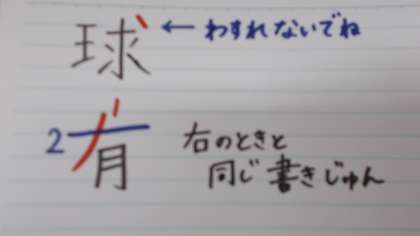 球 ← わすれないでね
2 有 1 右のときと
同じ書きじゅん